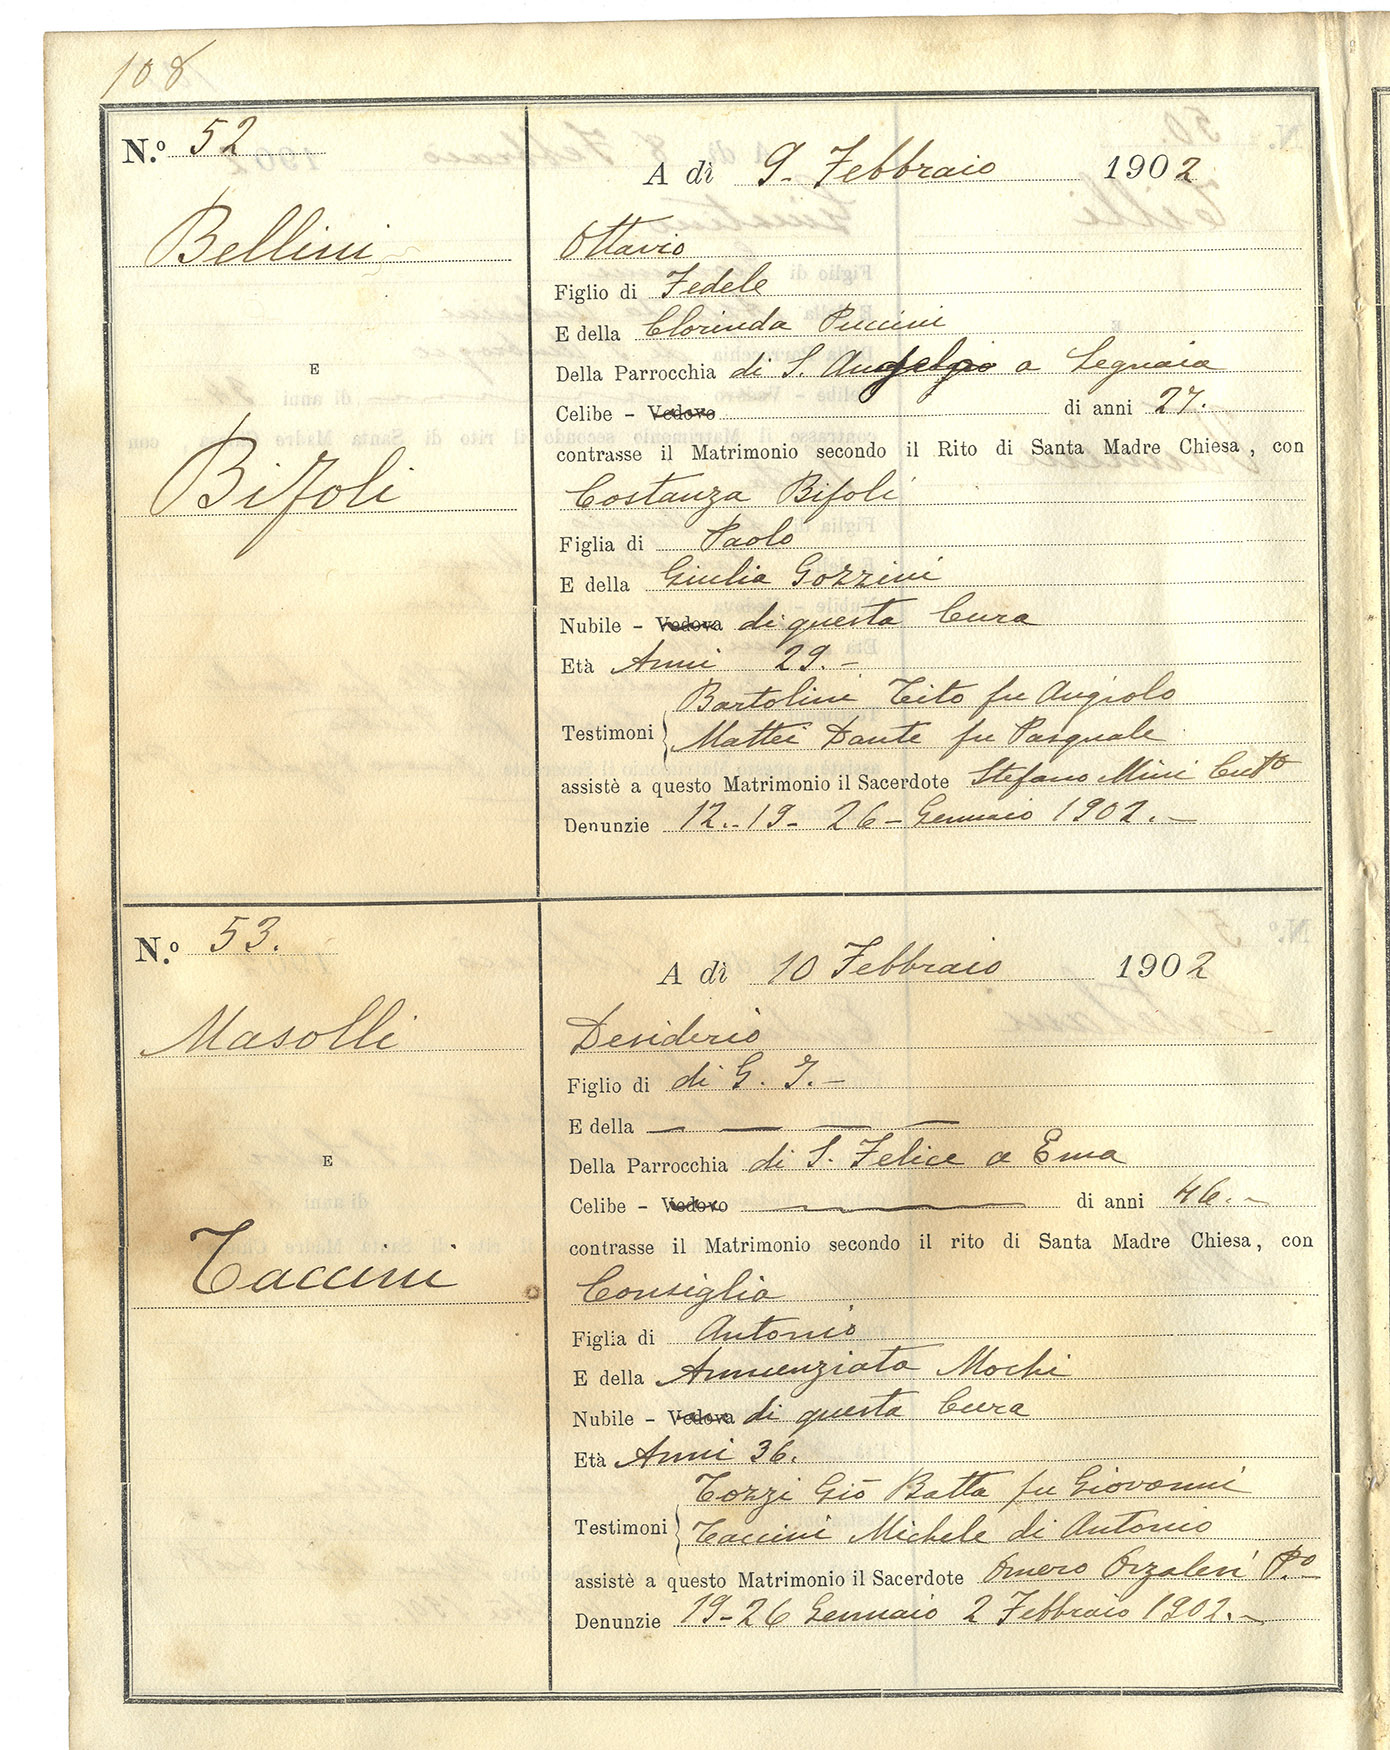 108
N.º 52
A dì 9. Febbraio 1902
Bellini
E
Bifoli
Ottavio
Figlio di Fedele
E della Clorinda Puccini
Della Parrocchia di S. a Legnaia
Celibe - Vedovo di anni 27.
contrasse il Matrimonio secondo il Rito di Santa Madre Chiesa, con
Costanza Bifoli
Figlia di Paolo
E della Giulia Gozzini
Nubile - Vedova di questa Cura
Età Anni 29. -
Bartolini Tito fu Angiolo
Testimoni
Mattei Dante fu Pasquale
assistè a questo Matrimonio il Sacerdote Stefano Mini
Denunzie 12.-19- 26- Gennaio 1902. -
N.º 53.
A dì 10 Febbraio 1902
Masolli
E
Taccini
Desiderio
Figlio di di G. -
E della — — — —
Della Parrocchia di S. Felice a Ema
Celibe - Vedovo — di anni 46. -
contrasse il Matrimonio secondo il rito di Santa Madre Chiesa, con
Consiglia
Figlia di Antonio
E della Annunziata Mochi
Nubile - Vedova di questa Cura
Età Anni 36.
Tozzi Gio Batta fu Giovanni
Testimoni
Taccini Michele di Antonio
assistè a questo Matrimonio il Sacerdote Omero Orzalesi P.º -
Denunzie 19-26 Gennaio 2 Febbraio 1902. -